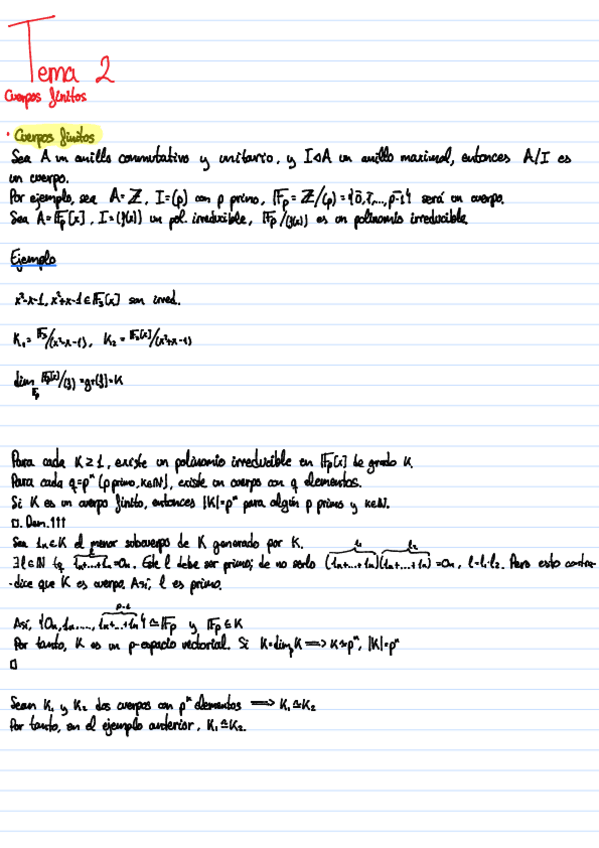 Tema 2
Cuerpos finitos
· Cuerpos finitos
Sea A un anillo conmutativo y unitario, y I◁A un anillo maximal, entonces A/I es
un cuerpo.
Por ejemplo, sea A=ℤ, I=(p) con p primo, 𝔽p = ℤ/(p) = {0̄,1̄,...,p-1} será un cuerpo.
Sea A=𝔽p[x], I=(f(x)) un pol. irreducible, 𝔽p/(f(x)) es un polinomio irreducible.
Ejemplo
x²-x-1, x²+x-1 ∈ 𝔽₃[x] son irred.
K₁= 𝔽₃/(x²-x-1), K₂ = 𝔽₃[x]/(x²+x-1)
dim 𝔽p 𝔽p[x]/(f) = gr(f) = K
Para cada K≥1, existe un polinomio irreducible en 𝔽p[x] de grado K.
Para cada q=pᵏ (p primo, K∈ℕ), existe un cuerpo con q elementos.
Si K es un cuerpo finito, entonces |K|=pᵏ para algún p primo y K∈ℕ.
□. Dem.!!!
Sea 1ₖ∈K el menor subcuerpo de K generado por K.
∃l∈ℕ tq 1ₖ+...+1ₖ=0ₖ. Este l debe ser primo; de no serlo (1ₖ+...+1ₖ)(1ₖ+...+1ₖ) =0ₖ, l=l₁·l₂. Pero esto contra-
-dice que K es cuerpo. Así, l es primo.
Así, {0ₖ,1ₖ,...,1ₖ+...+1ₖ} ≃ 𝔽p y 𝔽p ⊆ K
Por tanto, K es un p-espacio vectorial. Si K=dim K ⟹ K≃pᵏ, |K|=pᵏ
□
Sean K₁ y K₂ dos cuerpos con pᵏ elementos ⟹ K₁≃K₂
Por tanto, en el ejemplo anterior, K₁≃K₂.